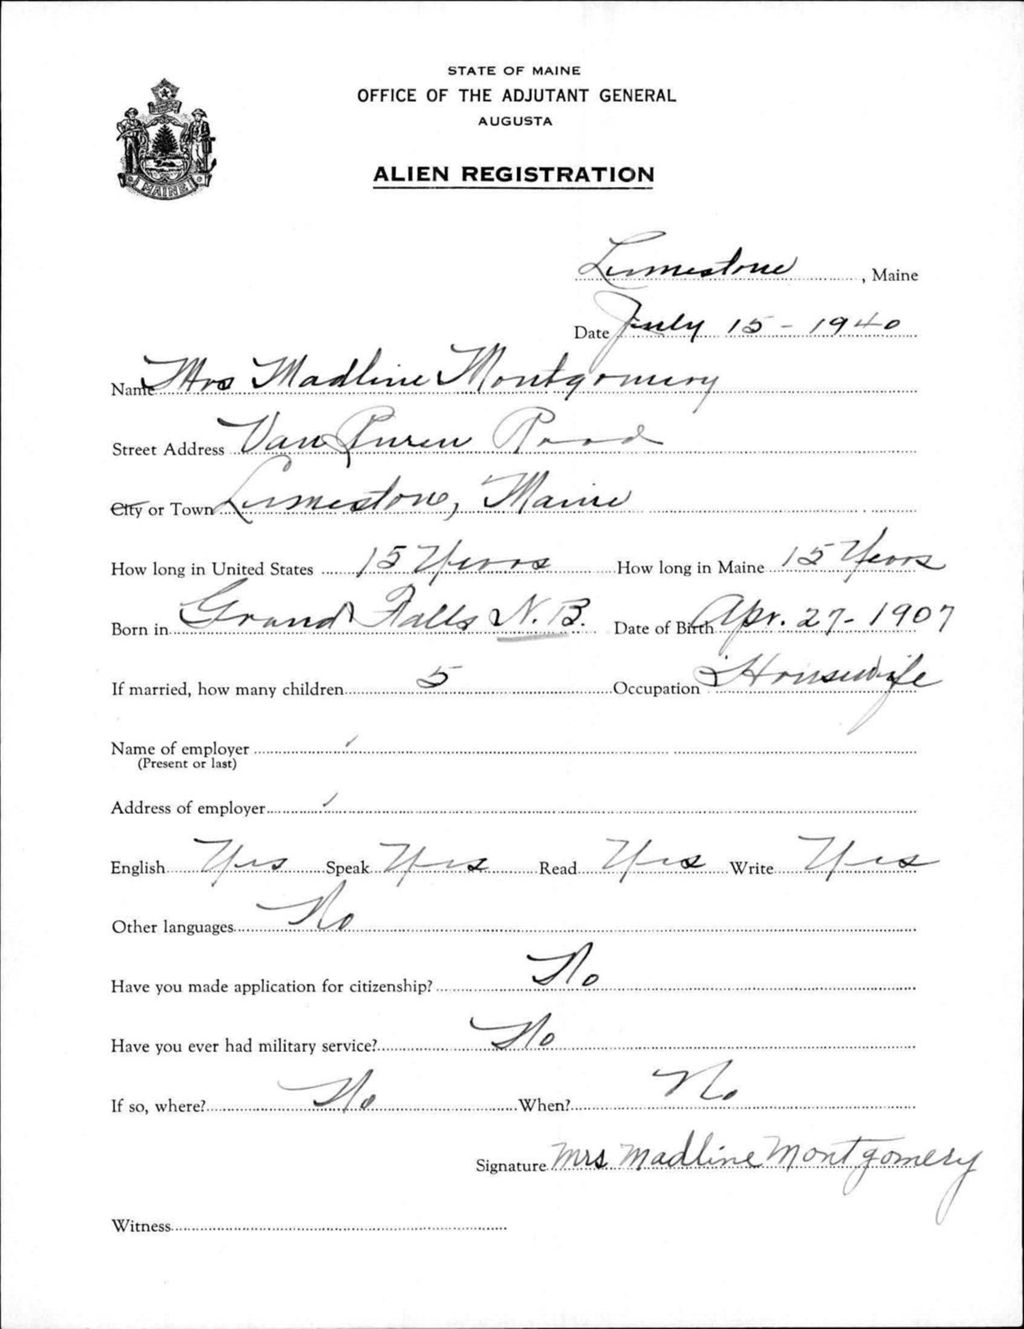 STATE OF MAINE
OFFICE OF THE ADJUTANT GENERAL
AUGUSTA
ALIEN REGISTRATION
MAINE
Limestone, Maine
Date July 15 - 1940
Name Mrs Madline Montgomery
Street Address Van Buren Road
City or Town Limestone, Maine
How long in United States 15 Years How long in Maine 15 Years
Born in Grand Falls N.B. Date of Birth Apr. 27 - 1907
If married, how many children 5 Occupation Housewife
Name of employer
(Present or last)
Address of employer
English Yes Speak Yes Read Yes Write Yes
Other languages No
Have you made application for citizenship? No
Have you ever had military service? No
If so, where? No When? No
Signature Mrs Madline Montgomery
Witness